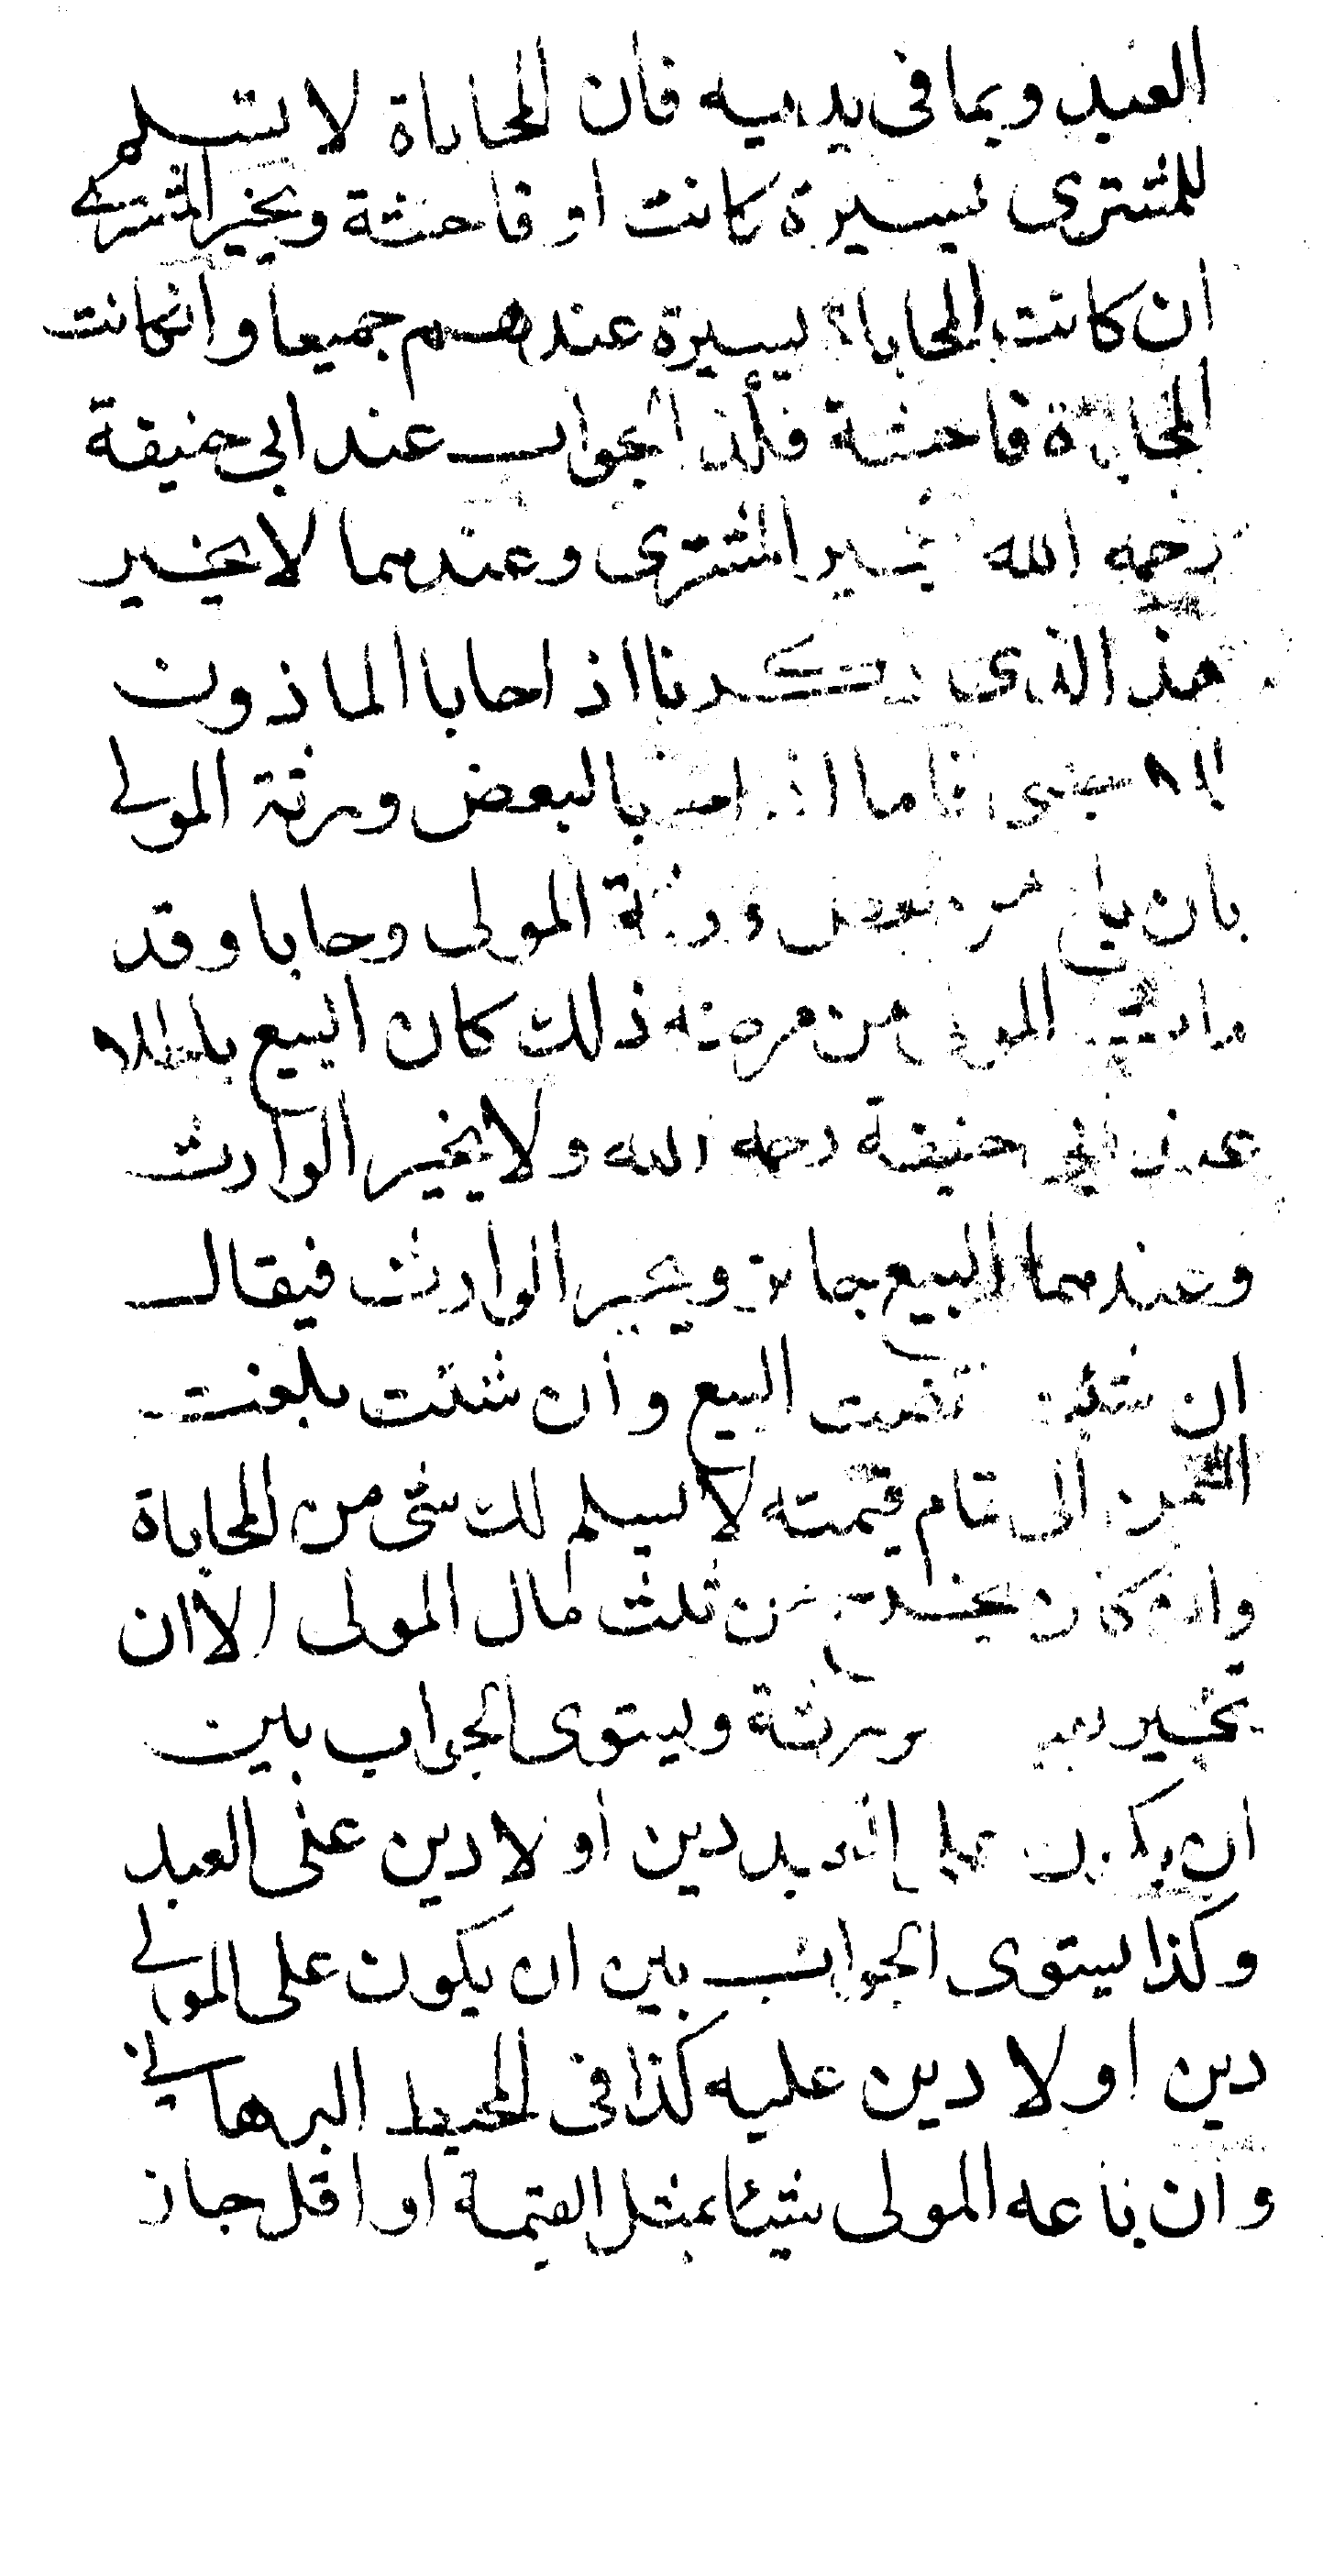 العبد وبما في يديه فان المحاباة لا تسلم
للمشترى يسيرة كانت او فاحشة ويخير المشترى
ان كانت المحاباة يسيرة عندهم جميعا وانكانت
المحاباة فاحشة فلذا الجواب عند ابى حنيفة
رحمه الله يخير المشترى وعندهما لا يخير
هذا الذى ذكرنا اذا حابا الماذون
الاجنبى فاما اذا حابا لبعض ورثة المولى
بان باع من بعض ورثة المولى وحابا وقد
مات المولى من مرضه ذلك كان البيع باطلا
عند ابى حنيفة رحمه الله ولا يخير الوارث
وعندهما البيع جائز ويخير الوارث فيقال
ان شئت نقضت البيع وان شئت بلغت
الثمن الى تمام قيمته لا يسلم لك شئ من المحاباة
وان كان يخرج من ثلث مال المولى الا ان
يخير ورثة ويستوى الجواب بين
ان يكون على العبد دين او لا دين على العبد
وكذا يستوى الجواب بين ان يكون على المولى
دين او لا دين عليه كذا فى المحيط البرهانى
وان باعه المولى شيئا بمثل القيمة او اقل جاز